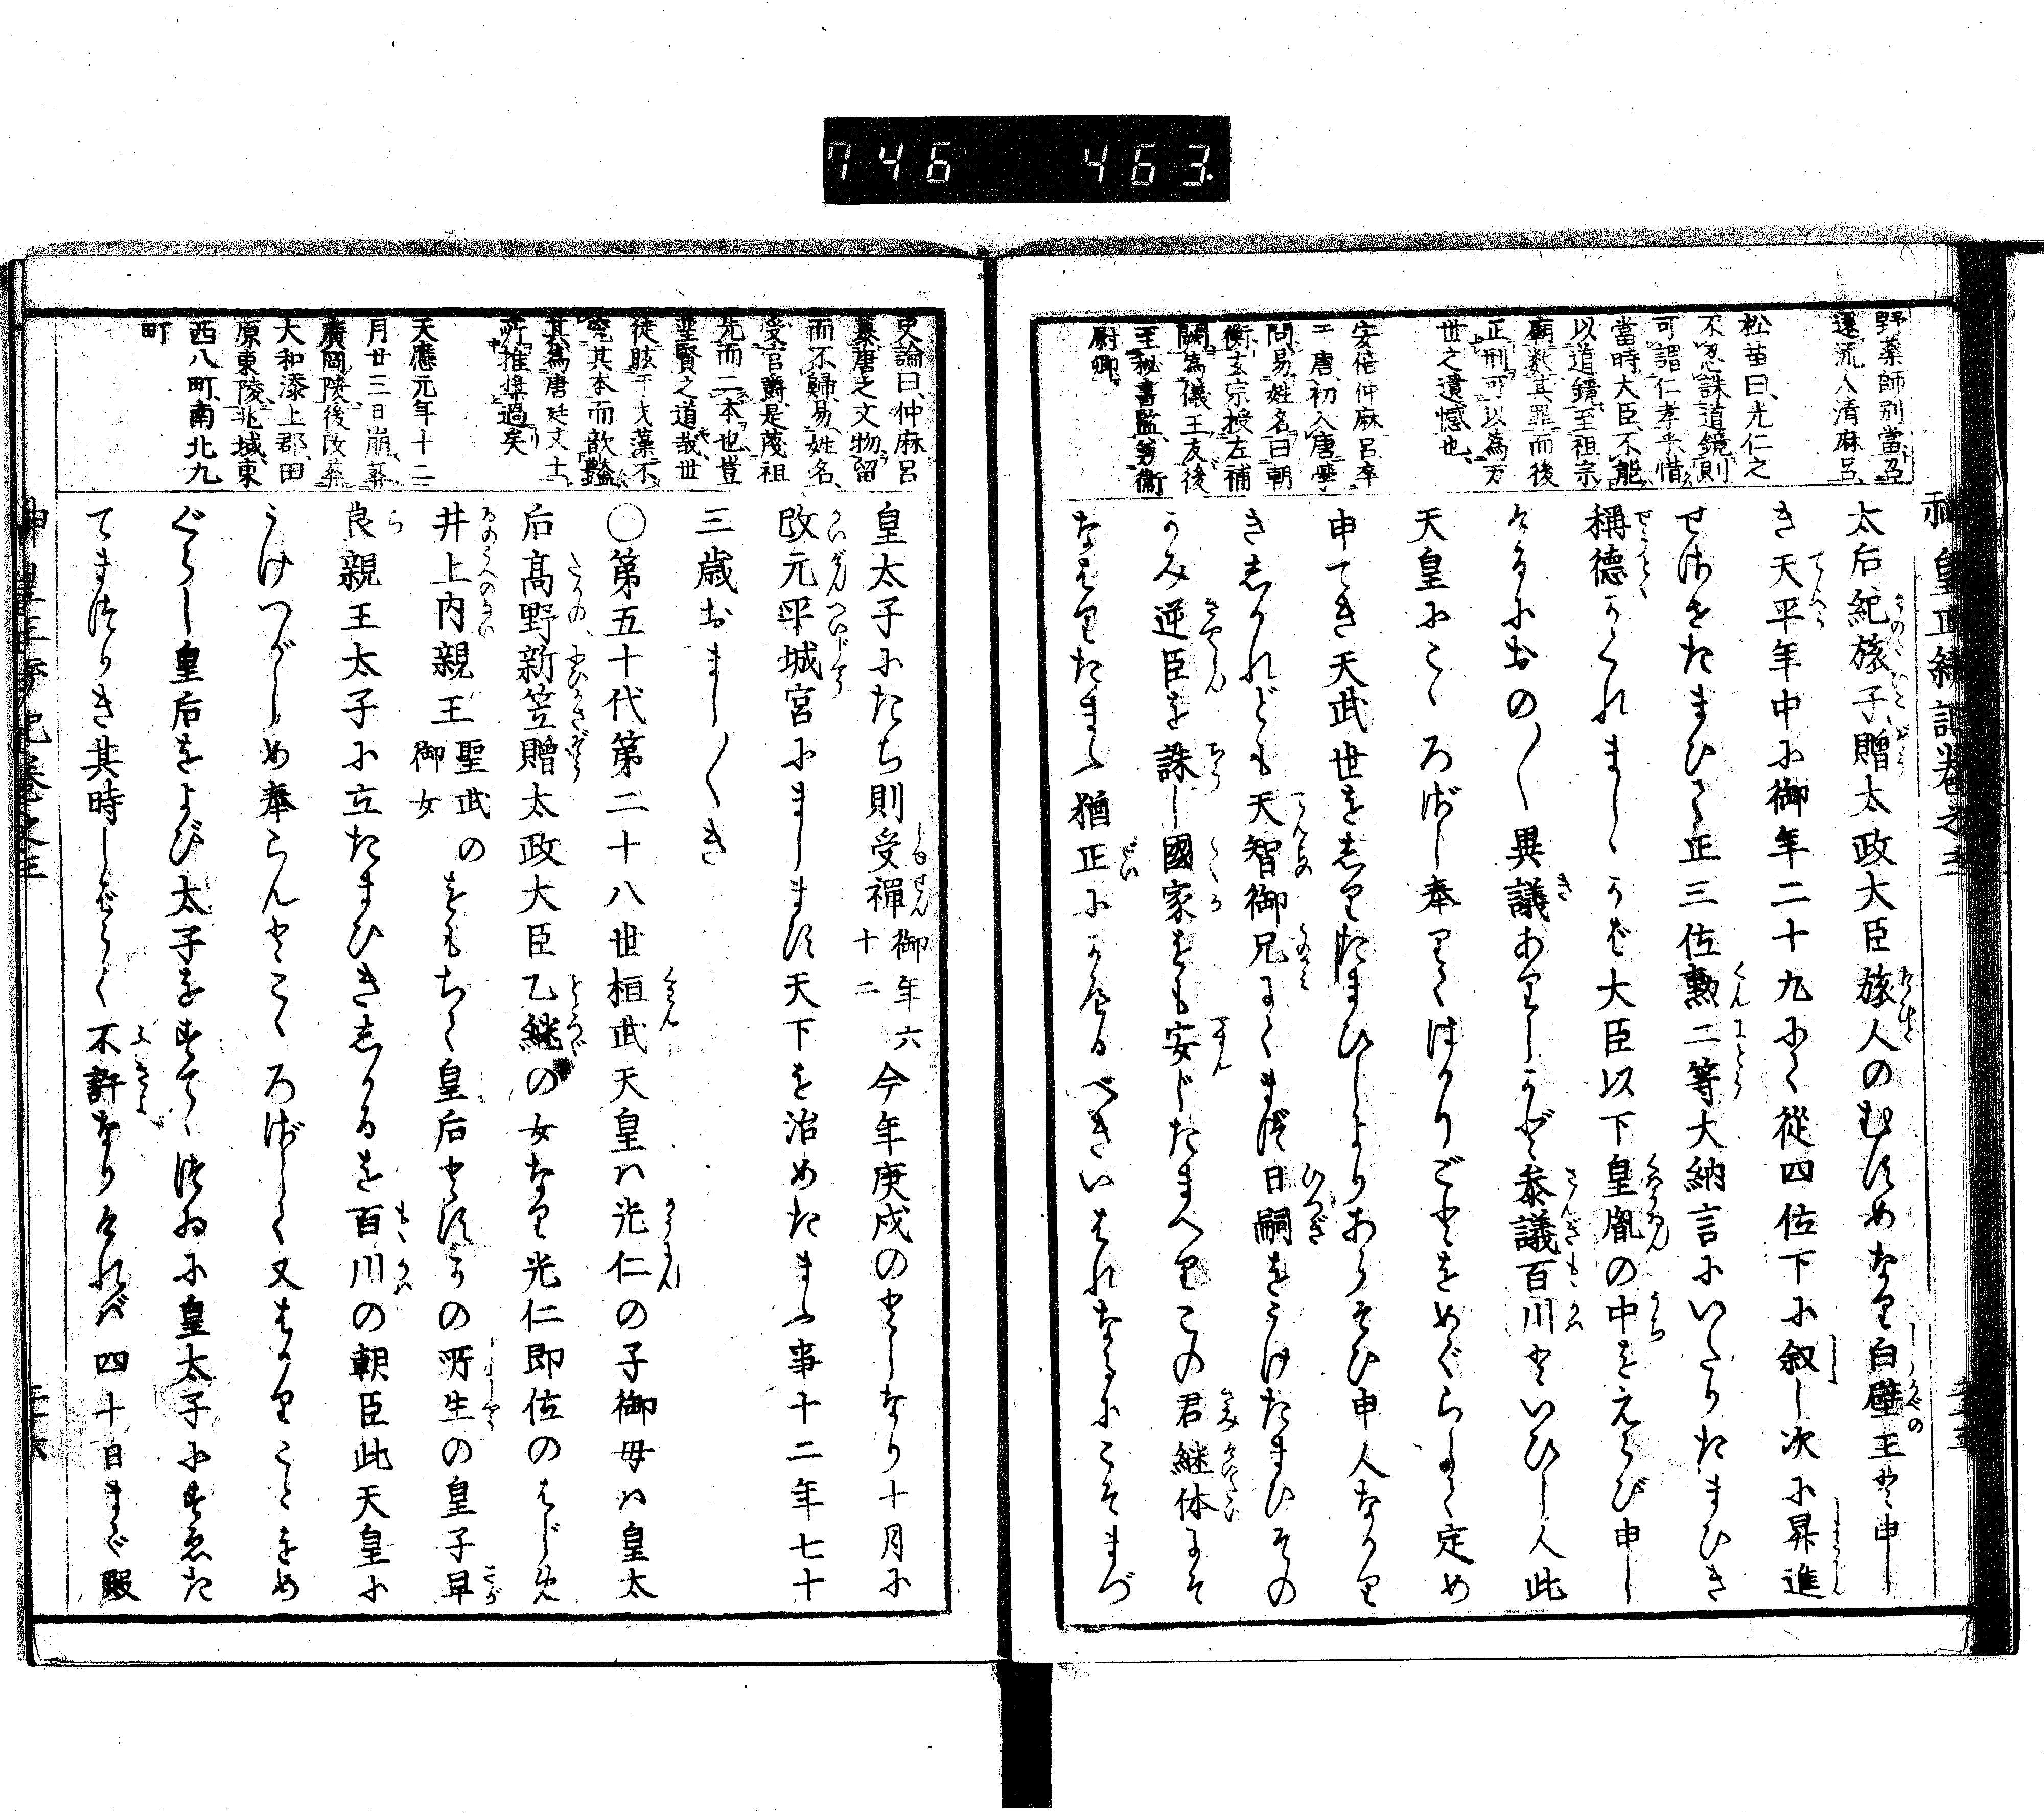 746 463.
神皇正統記卷之三
野藥師別當召
還流人清麻呂
松苗曰、光仁之
不忍誅道鏡則
可謂仁孝乎、惜
當時大臣、不能
以道鏡、至祖宗
廟数其罪而後
正刑可以為万
世之遺憾也、
安倍仲麻呂卒
二唐、初入唐學
問易姓名曰朝
衡玄宗授左補
闕為儀王友後
王秘書監、兼衞
尉卿
太后紀旅子、贈太政大臣旅人のむすめなり白壁王と申し
き天平年中に御年二十九にて從四位下に叙し次に昇進
せさせたまひて正三位勲二等大納言にいたりたまひき
稱德かくれましゝかば大臣以下皇胤の中をえらび申し
けるにおの〳〵異議ありしかど參議百川といひし人此
天皇にこゝろざし奉りてはかりごとをめぐらして定め
申てき天武世をしりたまひしよりあらそひ申人なかり
きしかれども天智御兄にてまづ日嗣をうけたまひその
かみ逆臣を誅し國家をも安じたまへりこの君継体にそ
なはりたまふ猶正にかへるべきいはれなるにこそまづ
史論曰、仲麻呂
慕唐之文物留
而不歸、易姓名、
受官爵是蔑祖
先而二本也、豈
聖賢之道哉世
徒眩于文藻不
究其本而歆艶
其為唐廷文士、
所推奨過矣
天應元年十二
月廿三日崩、葬
廣岡陵、後改葬
大和添上郡、田
原東陵、兆域、東
西八町、南北九
町
皇太子にたち則受禪御年六十二今年庚戌のとしなり十月に
改元平城宮にまします天下を治めたまふ事十二年七十
三歳おまし〳〵き
〇第五十代第二十八世桓武天皇ハ光仁の子御母ハ皇太
后高野新笠、贈太政大臣乙継の女なり光仁即位のはじめ
井上内親王聖武の御女をもちて皇后とすかの所生の皇子早
良親王太子に立たまひきしかるを百川の朝臣此天皇に
うけつがしめ奉らんとこゝろざして又はかりことをめ
ぐらし皇后をよび太子をすてゝつゐに皇太子にすゑた
てまつりき其時しばらく不許なりけれバ四十日まで殿
神皇正統記卷之三